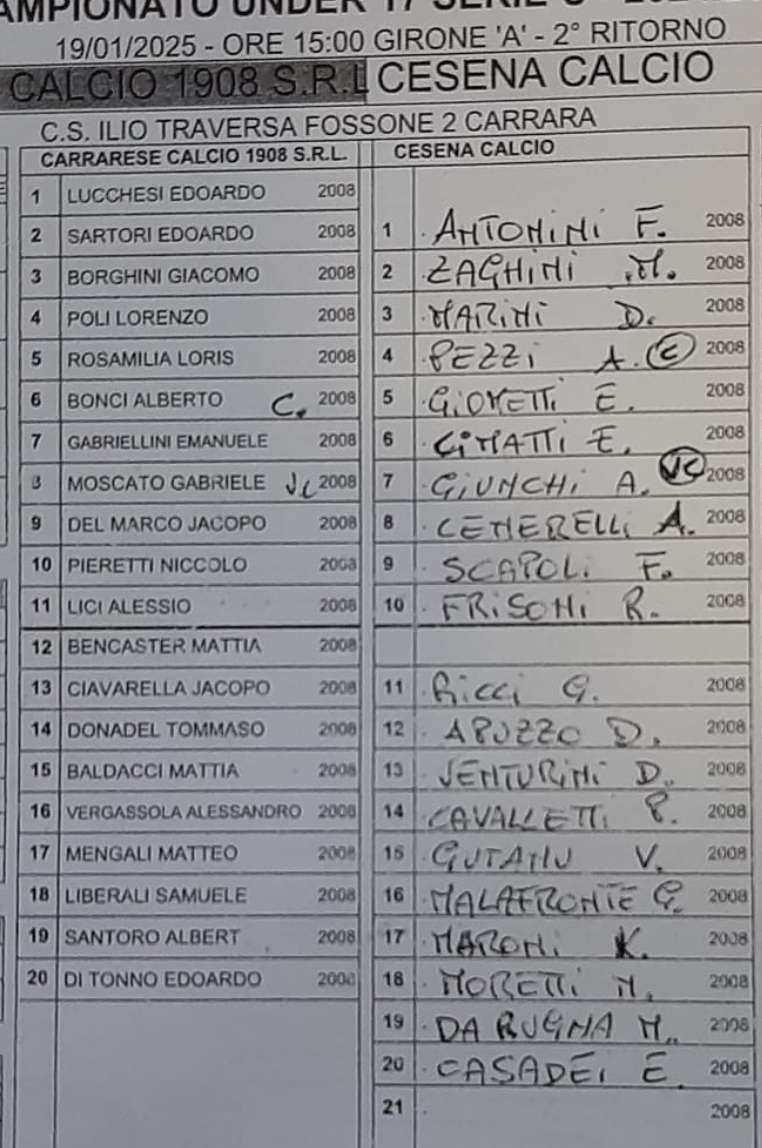 AMPIONATO UNDER 17 SERIE C
19/01/2025 - ORE 15:00 GIRONE 'A' - 2° RITORNO
CALCIO 1908 S.R.L CESENA CALCIO
C.S. ILIO TRAVERSA FOSSONE 2 CARRARA
CARRARESE CALCIO 1908 S.R.L.
1 LUCCHESI EDOARDO 2008
2 SARTORI EDOARDO 2008
3 BORGHINI GIACOMO 2008
4 POLI LORENZO 2008
5 ROSAMILIA LORIS 2008
6 BONCI ALBERTO C. 2008
7 GABRIELLINI EMANUELE 2008
8 MOSCATO GABRIELE VC 2008
9 DEL MARCO JACOPO 2008
10 PIERETTI NICCOLO 2008
11 LICI ALESSIO 2008
12 BENCASTER MATTIA 2008
13 CIAVARELLA JACOPO 2008
14 DONADEL TOMMASO 2008
15 BALDACCI MATTIA 2008
16 VERGASSOLA ALESSANDRO 2008
17 MENGALI MATTEO 2008
18 LIBERALI SAMUELE 2008
19 SANTORO ALBERT 2008
20 DI TONNO EDOARDO 2008
CESENA CALCIO
1 ANTONINI F. 2008
2 ZAGNINI M. 2008
3 MARINI D. 2008
4 PEZZI A. C 2008
5 GIOVETTI E. 2008
6 CIMATTI E. 2008
7 GIUNCHI A. VC 2008
8 CENERELLI A. 2008
9 SCAPOLI F. 2008
10 FRISONI R. 2008
11 RICCI G. 2008
12 APUZZO D. 2008
13 VENTURINI D. 2008
14 CAVALLETTI P. 2008
15 GUTANU V. 2008
16 MALAFRONTE G. 2008
17 MARONI K. 2008
18 MORETTI M. 2008
19 DA RUGNA M. 2008
20 CASADEI E. 2008
21 2008